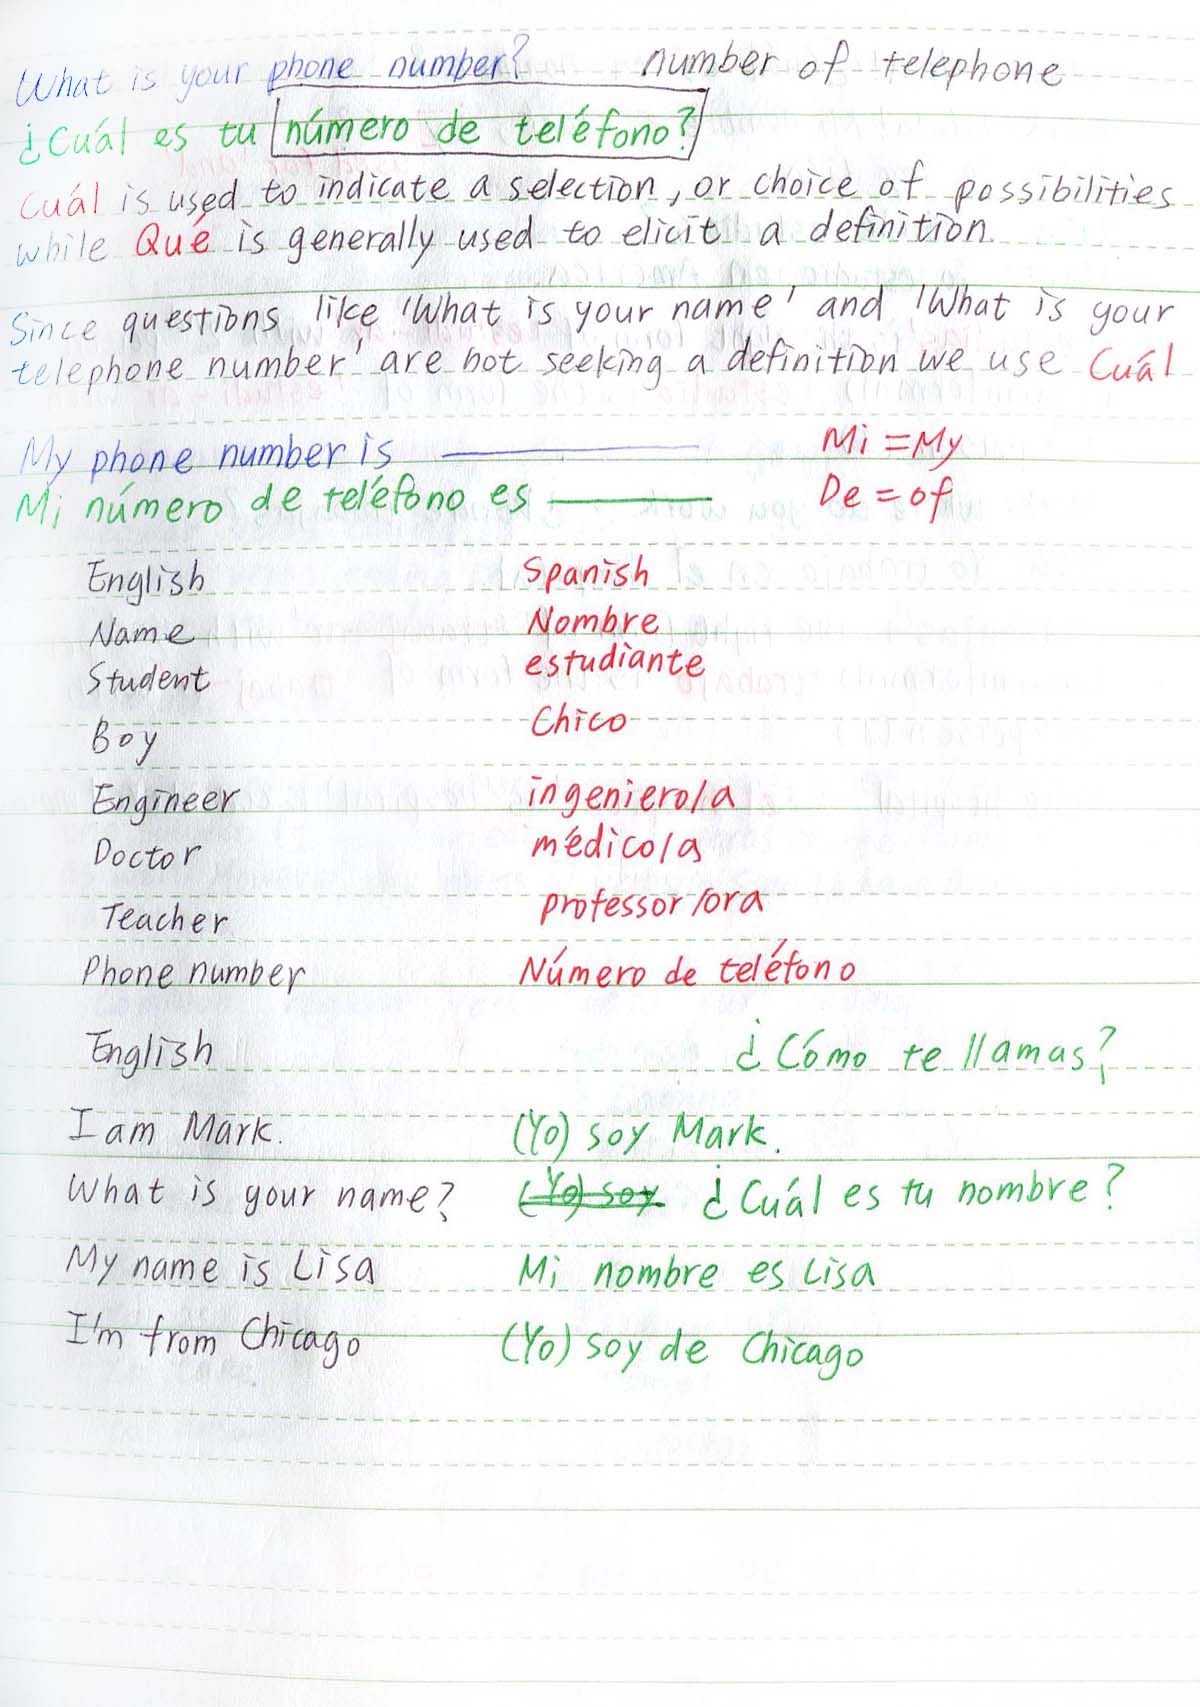 What is your phone number? number of telephone
¿Cuál es tu número de teléfono?
Cuál is used to indicate a selection, or choice of possibilities
while Qué is generally used to elicit a definition.
Since questions like 'What is your name' and 'What is your
telephone number' are not seeking a definition we use Cuál
My phone number is Mi = My
Mi número de teléfono es De = of
English Spanish
Name Nombre
Student estudiante
Boy Chico
Engineer ingeniero/a
Doctor médico/a
Teacher professor/ora
Phone number Número de teléfono
English ¿Cómo te llamas?
I am Mark. (Yo) soy Mark.
What is your name? (Yo) soy ¿Cuál es tu nombre?
My name is Lisa Mi nombre es Lisa
I'm from Chicago (Yo) soy de Chicago